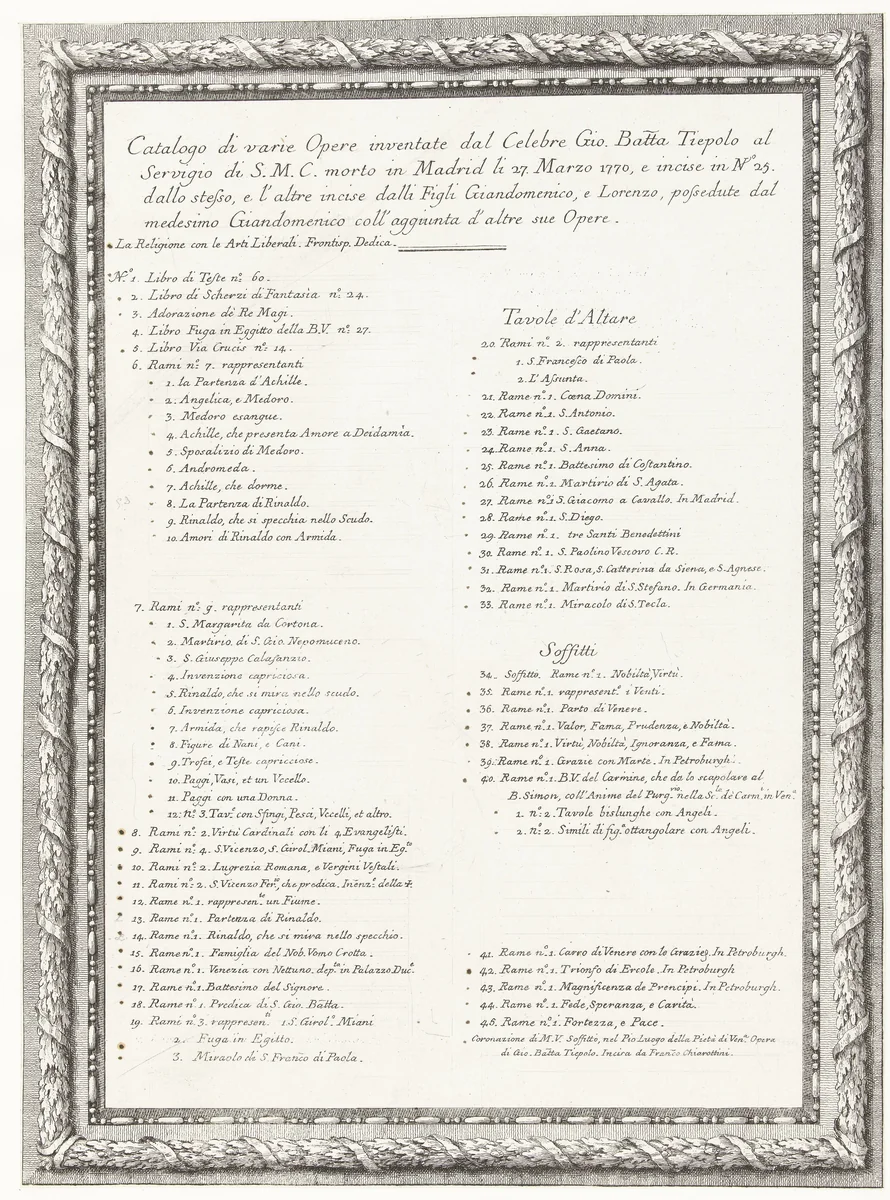 Catalogo di varie Opere inventate dal Celebre Gio. Batta Tiepolo al
Servigio di S. M. C. morto in Madrid li 27. Marzo 1770, e incise in Nº 25.
dallo stesso, e l'altre incise dalli Figli Giandomenico, e Lorenzo, possedute dal
medesimo Giandomenico coll'aggiunta d'altre sue Opere.
La Religione con le Arti Liberali. Frontisp. Dedica.
Nº 1. Libro di Teste nº: 60.
2. Libro di Scherzi di Fantasia nº: 24.
3. Adorazione dè Re Magi.
4. Libro Fuga in Eggitto della B.V. nº: 27.
5. Libro Via Crucis nº: 14.
6. Rami nº: 7. rappresentanti
1. la Partenza d'Achille.
2. Angelica, e Medoro.
3. Medoro esangue.
4. Achille, che presenta Amore a Deidamia.
5. Sposalizio di Medoro.
6. Andromeda.
7. Achille, che dorme.
8. La Partenza di Rinaldo.
9. Rinaldo, che si specchia nello Scudo.
10. Amori di Rinaldo con Armida.
7. Rami nº: 9. rappresentanti
1. S. Margarita da Cortona.
2. Martirio di S. Gio. Nepomuceno.
3. S. Giuseppe Calasanzio.
4. Invenzione capriciosa.
5. Rinaldo, che si mira nello scudo.
6. Invenzione capriciosa.
7. Armida, che rapisce Rinaldo.
8. Figure di Nani, e Cani.
9. Trofei, e Teste capricciose.
10. Paggi, Vasi, et un Vccello.
11. Paggi con una Donna.
12. nº: 3. Tav.e con Sfingi, Pesci, Vccelli, et altro.
8. Rami nº: 2. Virtù Cardinali con li 4. Evangelisti.
9. Rami nº: 4. S. Vicenzo, S. Girol. Miani, Fuga in Eg.to
10. Rami nº: 2. Lugrezia Romana, e Vergini Vestali.
11. Rami nº: 2. S. Vicenzo Fer.º, che predica. Invenz.e della ✝.
12. Rame nº. 1. rappresen.te un Fiume.
13. Rame nº. 1. Partenza di Rinaldo.
14. Rame nº. 1. Rinaldo, che si mira nello specchio.
15. Rame nº. 1. Famiglia del Nob. Vomo Crotta.
16. Rame nº. 1. Venezia con Nettuno. dep.ta in Palazzo Duc.e
17. Rame nº. 1. Battesimo del Signore.
18. Rame nº. 1. Predica di S. Gio. Batta.
19. Rami nº. 3. rappresen.ti 1. S. Girol.º Miani
2. Fuga in Egitto.
3. Miraolo de S. Franco di Paola.
Tavole d'Altare
20. Rami nº. 2. rappresentanti
1. S. Francesco di Paola.
2. L'Assunta.
21. Rame nº. 1. Cœna Domini.
22. Rame nº. 1. S. Antonio.
23. Rame nº. 1. S. Gaetano.
24. Rame nº. 1. S. Anna.
25. Rame nº. 1. Battesimo di Costantino.
26. Rame nº. 1. Martirio di S. Agata.
27. Rame nº. 1. S. Giacomo a Cavallo. In Madrid.
28. Rame nº. 1. S. Diego.
29. Rame nº. 1. tre Santi Benedettini
30. Rame nº. 1. S. Paolino Vescovo C. R.
31. Rame nº. 1. S. Rosa, S. Catterina da Siena, e S. Agnese.
32. Rame nº. 1. Martirio di S. Stefano. In Germania.
33. Rame nº. 1. Miracolo di S. Tecla.
Soffitti
34. Soffitto. Rame nº. 1. Nobiltà, Virtù.
35. Rame nº. 1. rappresent.e i Venti.
36. Rame nº. 1. Parto di Venere.
37. Rame nº. 1. Valor, Fama, Prudenza, e Nobiltà.
38. Rame nº. 1. Virtù, Nobiltà, Ignoranza, e Fama.
39. Rame nº. 1. Grazie con Marte. In Petroburgh.
40. Rame nº. 1. B.V. del Carmine, che da lo scapolare al
B. Simon, coll'Anime del Purg.rio nella Sc.la dè Carm.i in Ven.a
1. nº: 2. Tavole bislunghe con Angeli.
2. nº: 2. Simili di fig.e ottangolare con Angeli.
41. Rame nº. 1. Carro di Venere con le Grazie. In Petroburgh.
42. Rame nº. 1. Trionfo di Ercole. In Petroburgh
43. Rame nº. 1. Magnificenza de Prencipi. In Petroburgh.
44. Rame nº. 1. Fede, Speranza, e Carità.
46. Rame nº. 1. Fortezza, e Pace.
Coronazione di M.V. Soffitto, nel Pio Luogo della Pietà di Ven.a Opera
di Gio. Batta Tiepolo. Incisa da Franco Chiarottini.